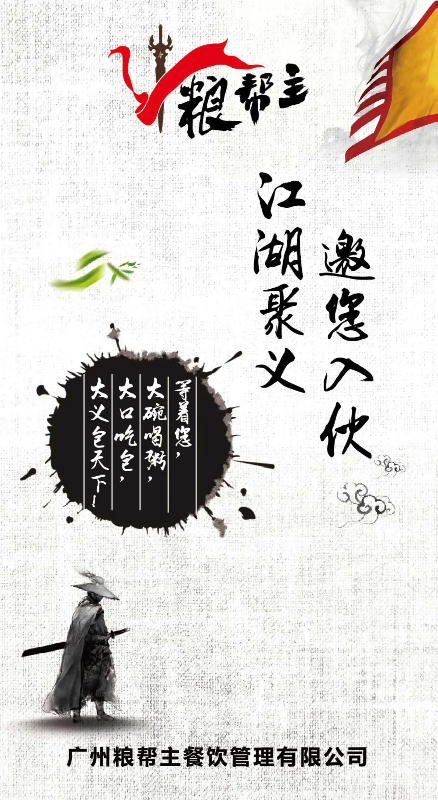 粮帮主
邀您入伙
江湖聚义
等着您，
大碗喝粥，
大口吃包，
大义包天下！
广州粮帮主餐饮管理有限公司